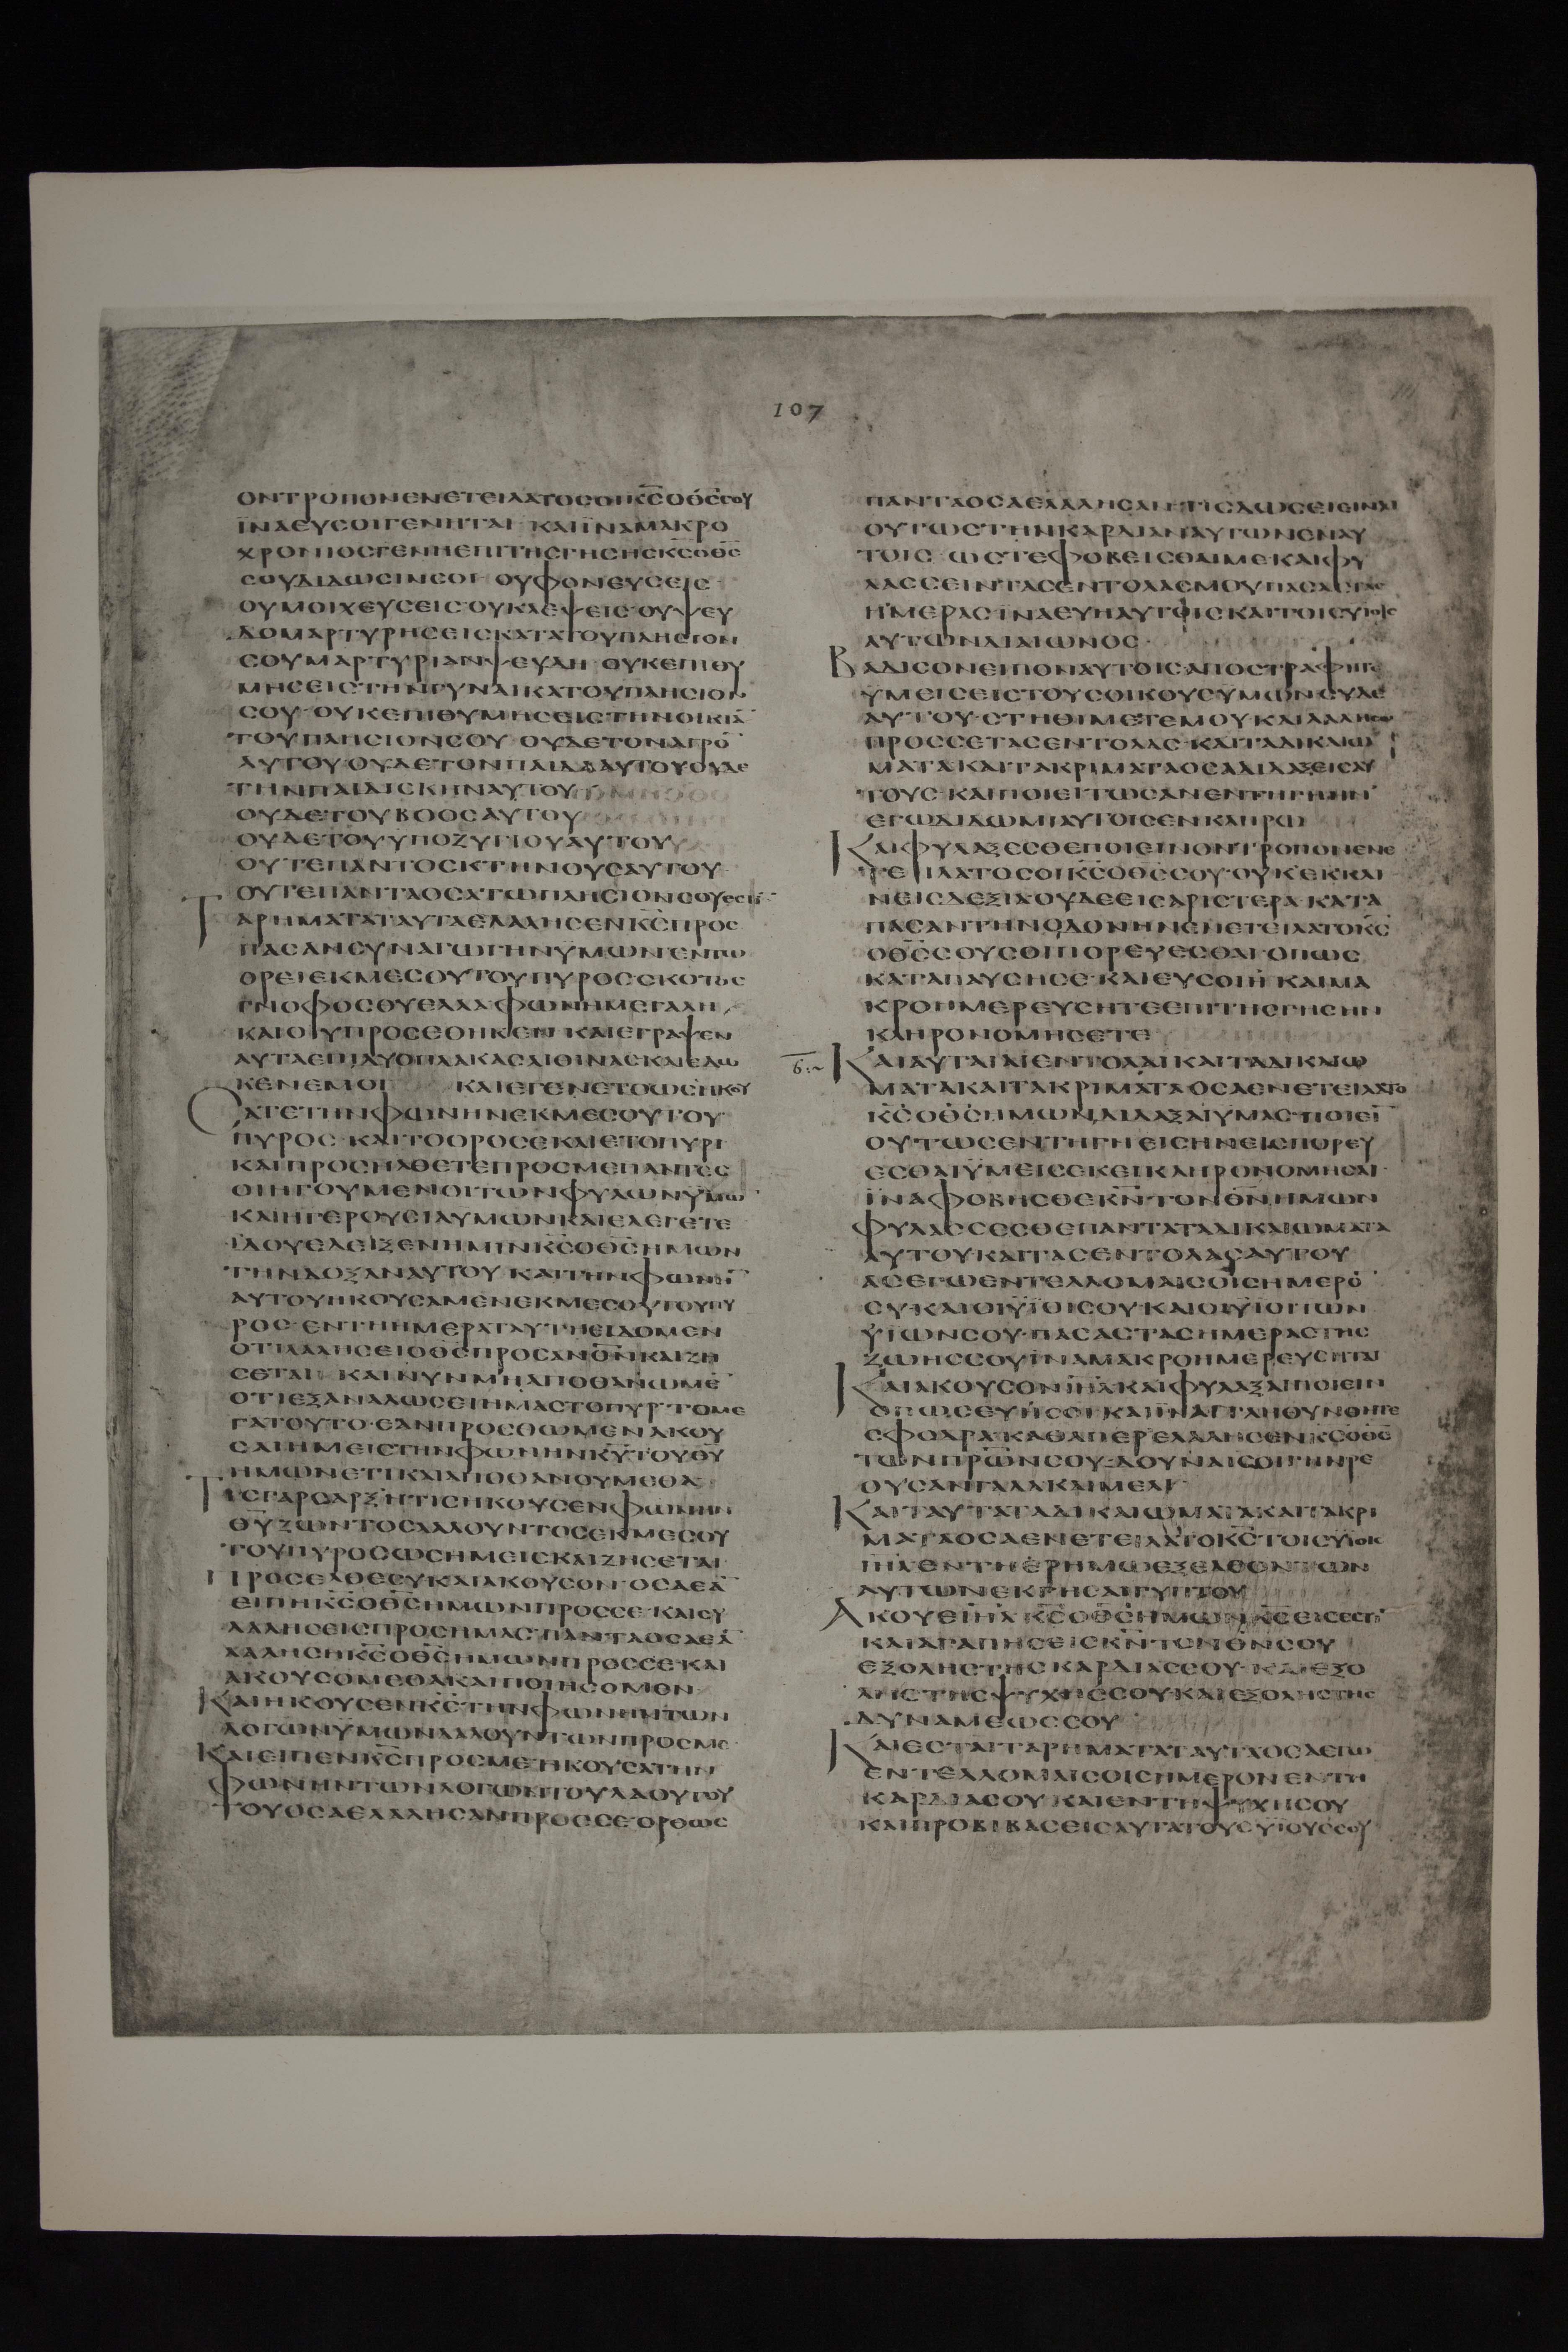 107
ΟΝΤΡΟΠΟΝΕΝΕΤΕΙΛΑΤΟΣΟΙΚ̅Σ̅ΟΘ̅Σ̅ΣΟΥ
ΪΝΑΕΥΣΟΙΓΕΝΗΤΑΙ ΚΑΙΪΝΑΜΑΚΡΟ
ΧΡΟΝΙΟΣΓΕΝΗΕΠΙΤΗΣΓΗΣΗΣΚ̅Σ̅ΟΘ̅Σ̅
ΣΟΥΔΙΔΩΣΙΝΣΟΙ ΟΥΦΟΝΕΥΣΕΙΣ
ΟΥΜΟΙΧΕΥΣΕΙΣ·ΟΥΚΛΕΨΕΙΣ·ΟΥΨΕΥ
ΔΟΜΑΡΤΥΡΗΣΕΙΣΚΑΤΑΤΟΥΠΛΗΣΙΟΝ
ΣΟΥΜΑΡΤΥΡΙΑΝΨΕΥΔΗ ΟΥΚΕΠΙΘΥ
ΜΗΣΕΙΣΤΗΝΓΥΝΑΙΚΑΤΟΥΠΛΗΣΙΟΝ
ΣΟΥ·ΟΥΚΕΠΙΘΥΜΗΣΕΙΣΤΗΝΟΙΚΙΑ̅
ΤΟΥΠΛΗΣΙΟΝΣΟΥ ΟΥΔΕΤΟΝΑΓΡΟ̅
ΑΥΤΟΥ·ΟΥΔΕΤΟΝΠΑΙΔΑΑΥΤΟΥΟΥΔΕ
ΤΗΝΠΑΙΔΙΣΚΗΝΑΥΤΟΥ
ΟΥΔΕΤΟΥΒΟΟΣΑΥΤΟΥ
ΟΥΔΕΤΟΥΥΠΟΖΥΓΙΟΥΑΥΤΟΥ
ΟΥΤΕΠΑΝΤΟΣΚΤΗΝΟΥΣΑΥΤΟΥ
ΟΥΤΕΠΑΝΤΑΟΣΑΤΩΠΛΗΣΙΟΝΣΟΥΕΣΤΙ̅
ΤΑΡΗΜΑΤΑΤΑΥΤΑΕΛΑΛΗΣΕΝΚ̅Σ̅ΠΡΟΣ
ΠΑΣΑΝΣΥΝΑΓΩΓΗΝΥΜΩΝΕΝΤΩ
ΟΡΕΙΕΚΜΕΣΟΥΤΟΥΠΥΡΟΣ·ΣΚΟΤΟΣ
ΓΝΟΦΟΣΘΥΕΛΛΑΦΩΝΗΜΕΓΑΛΗ
ΚΑΙΟΥΠΡΟΣΕΘΗΚΕΝ ΚΑΙΕΓΡΑΨΕΝ
ΑΥΤΑΕΠΙΔΥΟΠΛΑΚΑΣΛΙΘΙΝΑΣΚΑΙΕΔΩ
ΚΕΝΕΜΟΙ ΚΑΙΕΓΕΝΕΤΟΩΣΗΚΟΥ
ΣΑΤΕΤΗΝΦΩΝΗΝΕΚΜΕΣΟΥΤΟΥ
ΠΥΡΟΣ·ΚΑΙΤΟΟΡΟΣΕΚΑΙΕΤΟΠΥΡΙ
ΚΑΙΠΡΟΣΗΛΘΕΤΕΠΡΟΣΜΕΠΑΝΤΕΣ
ΟΙΗΓΟΥΜΕΝΟΙΤΩΝΦΥΛΩΝΥΜΩ̅
ΚΑΙΗΓΕΡΟΥΣΙΑΥΜΩΝΚΑΙΕΛΕΓΕΤΕ
ΙΔΟΥΕΔΕΙΞΕΝΗΜΙΝΚ̅Σ̅ΟΘ̅Σ̅ΗΜΩΝ
ΤΗΝΔΟΞΑΝΑΥΤΟΥ ΚΑΙΤΗΝΦΩΝΗ̅
ΑΥΤΟΥΗΚΟΥΣΑΜΕΝΕΚΜΕΣΟΥΤΟΥΠΥ
ΡΟΣ·ΕΝΤΗΗΜΕΡΑΤΑΥΤΗΕΙΔΟΜΕΝ
ΟΤΙΛΑΛΗΣΕΙΟΘ̅Σ̅ΠΡΟΣΑΝ̅Ο̅Ν̅ΚΑΙΖΗ
ΣΕΤΑΙ ΚΑΙΝΥΝΜΗΑΠΟΘΑΝΩΜΕ̅
ΟΤΙΕΞΑΝΑΛΩΣΕΙΗΜΑΣΤΟΠΥΡ·ΤΟΜΕ
ΓΑΤΟΥΤΟ·ΕΑΝΠΡΟΣΘΩΜΕΝΑΚΟΥ
ΣΑΙΗΜΕΙΣΤΗΝΦΩΝΗΝΚ̅Υ̅ΤΟΥΘ̅Υ̅
ΗΜΩΝΕΤΙΚΑΙΑΠΟΘΑΝΟΥΜΕΘΑ
ΤΙΣΓΑΡΣΑΡΞΗΤΙΣΗΚΟΥΣΕΝΦΩΝΗΝ
Θ̅Υ̅ΖΩΝΤΟΣΛΑΛΟΥΝΤΟΣΕΚΜΕΣΟΥ
ΤΟΥΠΥΡΟΣΩΣΗΜΕΙΣΚΑΙΖΗΣΕΤΑΙ
ΠΡΟΣΕΛΘΕΣΥΚΑΙΑΚΟΥΣΟΝ·ΟΣΑΕΑ̅
ΕΙΠΗΚ̅Σ̅ΟΘ̅Σ̅ΗΜΩΝΠΡΟΣΣΕ·ΚΑΙΣΥ
ΛΑΛΗΣΕΙΣΠΡΟΣΗΜΑΣ·ΠΑΝΤΑΟΣΑΕΑ̅
ΛΑΛΗΣΗΚ̅Σ̅ΟΘ̅Σ̅ΗΜΩΝΠΡΟΣΣΕ·ΚΑΙ
ΑΚΟΥΣΟΜΕΘΑΚΑΙΠΟΙΗΣΟΜΕΝ
ΚΑΙΗΚΟΥΣΕΝΚ̅Σ̅ΤΗΝΦΩΝΗΝΤΩΝ
ΛΟΓΩΝΫΜΩΝΛΑΛΟΥΝΤΩΝΠΡΟΣΜΕ
ΚΑΙΕΙΠΕΝΚ̅Σ̅ΠΡΟΣΜΕ·ΗΚΟΥΣΑΤΗΝ
ΦΩΝΗΝΤΩΝΛΟΓΩΝΤΟΥΛΑΟΥΤΟΥ
ΤΟΥΟΣΑΕΛΑΛΗΣΑΝΠΡΟΣΣΕ·ΟΡΘΩΣ
ΠΑΝΤΑΟΣΑΕΛΑΛΗΣΑΝ·ΤΙΣΔΩΣΕΙΕΙΝΑΙ
ΟΥΤΩΣΤΗΝΚΑΡΔΙΑΝΑΥΤΩΝΕΝΑΥ
ΤΟΙΣ ΩΣΤΕΦΟΒΕΙΣΘΑΙΜΕ·ΚΑΙΦΥ
ΛΑΣΣΕΙΝΤΑΣΕΝΤΟΛΑΣΜΟΥΠΑΣΑΣΤΑΣ
ΗΜΕΡΑΣΪΝΑΕΥΗΑΥΤΟΙΣΚΑΙΤΟΙΣΥΙΟΙΣ
ΑΥΤΩΝΔΙΑΙΩΝΟΣ
ΒΑΔΙΣΟΝΕΙΠΟΝΑΥΤΟΙΣΑΠΟΣΤΡΑΦΗΤΕ
ΫΜΕΙΣΕΙΣΤΟΥΣΟΙΚΟΥΣΥΜΩΝΣΥΔΕ
ΑΥΤΟΥ·ΣΤΗΘΙΜΕΤΕΜΟΥΚΑΙΛΑΛΗΣΩ
ΠΡΟΣΣΕΤΑΣΕΝΤΟΛΑΣ·ΚΑΙΤΑΔΙΚΑΙΩ
ΜΑΤΑΚΑΙΤΑΚΡΙΜΑΤΑΟΣΑΔΙΔΑΞΕΙΣΑΥ
ΤΟΥΣ·ΚΑΙΠΟΙΕΙΤΩΣΑΝΕΝΤΗΓΗΗΝ
ΕΓΩΔΙΔΩΜΙΑΥΤΟΙΣΕΝΚΛΗΡΩ
ΚΑΙΦΥΛΑΞΕΣΘΕΠΟΙΕΙΝΟΝΤΡΟΠΟΝΕΝΕ
ΤΕΙΛΑΤΟΣΟΙΚ̅Σ̅ΟΘ̅Σ̅ΣΟΥ·ΟΥΚΕΚΚΛΙ
ΝΕΙΣΔΕΞΙΑΟΥΔΕΕΙΣΑΡΙΣΤΕΡΑ·ΚΑΤΑ
ΠΑΣΑΝΤΗΝΟΔΟΝΗΝΕΝΕΤΕΙΛΑΤΟΚ̅Σ̅
ΟΘ̅Σ̅ΣΟΥΣΟΙΠΟΡΕΥΕΣΘΑΙ·ΟΠΩΣ
ΚΑΤΑΠΑΥΣΗΣΕ·ΚΑΙΕΥΣΟΙΗ ΚΑΙΜΑ
ΚΡΟΗΜΕΡΕΥΣΗΤΕΕΠΙΤΗΣΓΗΣΗΝ
ΚΛΗΡΟΝΟΜΗΣΕΤΕ
ΚΑΙΑΥΤΑΙΑΙΕΝΤΟΛΑΙΚΑΙΤΑΔΙΚΑΙΩ
ΜΑΤΑΚΑΙΤΑΚΡΙΜΑΤΑΟΣΑΕΝΕΤΕΙΛΑΤΟ
Κ̅Σ̅ΟΘ̅Σ̅ΗΜΩΝΔΙΔΑΞΑΙΥΜΑΣ·ΠΟΙΕΙ̅
ΟΥΤΩΣΕΝΤΗΓΗΕΙΣΗΝΕΙΣΠΟΡΕΥ
ΕΣΘΑΙΫΜΕΙΣΕΚΕΙΚΛΗΡΟΝΟΜΗΣΑΙ
ΪΝΑΦΟΒΗΣΘΕΚ̅Ν̅ΤΟΝΘ̅Ν̅ΗΜΩΝ
ΦΥΛΑΣΣΕΣΘΕΠΑΝΤΑΤΑΔΙΚΑΙΩΜΑΤΑ
ΑΥΤΟΥΚΑΙΤΑΣΕΝΤΟΛΑΣΑΥΤΟΥ
ΑΣΕΓΩΕΝΤΕΛΛΟΜΑΙΣΟΙΣΗΜΕΡΟ̅
ΣΥ·ΚΑΙΟΙΫΙΟΙΣΟΥ·ΚΑΙΟΙΫΙΟΙΤΩΝ
ΫΙΩΝΣΟΥ·ΠΑΣΑΣΤΑΣΗΜΕΡΑΣΤΗΣ
ΖΩΗΣΣΟΥΪΝΑΜΑΚΡΟΗΜΕΡΕΥΣΗΤΑΙ
ΚΑΙΑΚΟΥΣΟΝΙ̅Η̅Λ̅ΚΑΙΦΥΛΑΞΑΙΠΟΙΕΙΝ
ΟΠΩΣΕΥΗΣΟΙ·ΚΑΙΪΝΑΠΛΗΘΥΝΘΗΤΕ
ΣΦΟΔΡΑ·ΚΑΘΑΠΕΡΕΛΑΛΗΣΕΝΚ̅Σ̅ΟΘ̅Σ̅
ΤΩΝΠΡ̅Ω̅Ν̅ΣΟΥ·ΔΟΥΝΑΙΣΟΙΓΗΝΡΕ
ΟΥΣΑΝΓΑΛΑΚΑΙΜΕΛΙ
ΚΑΙΤΑΥΤΑΤΑΔΙΚΑΙΩΜΑΤΑΚΑΙΤΑΚΡΙ
ΜΑΤΑΟΣΑΕΝΕΤΕΙΛΑΤΟΚ̅Σ̅ΤΟΙΣΥΙΟΙΣ
Ι̅Η̅Λ̅ΕΝΤΗΕΡΗΜΩΕΞΕΛΘΟΝΤΩΝ
ΑΥΤΩΝΕΚΓΗΣΑΙΓΥΠΤΟΥ
ΑΚΟΥΕΙ̅Η̅Λ̅Κ̅Σ̅ΟΘ̅Σ̅ΗΜΩΝΚ̅Σ̅ΕΙΣΕΣΤΙ̅
ΚΑΙΑΓΑΠΗΣΕΙΣΚ̅Ν̅ΤΟΝΘ̅Ν̅ΣΟΥ
ΕΞΟΛΗΣΤΗΣΚΑΡΔΙΑΣΣΟΥ·ΚΑΙΕΞΟ
ΛΗΣΤΗΣΨΥΧΗΣΣΟΥ·ΚΑΙΕΞΟΛΗΣΤΗΣ
ΔΥΝΑΜΕΩΣΣΟΥ
ΚΑΙΕΣΤΑΙΤΑΡΗΜΑΤΑΤΑΥΤΑΟΣΑΕΓΩ
ΕΝΤΕΛΛΟΜΑΙΣΟΙΣΗΜΕΡΟΝΕΝΤΗ
ΚΑΡΔΙΑΣΟΥ ΚΑΙΕΝΤΗΨΥΧΗΣΟΥ
ΚΑΙΠΡΟΒΙΒΑΣΕΙΣΑΥΤΑΤΟΥΣΥΙΟΥΣΣΟΥ